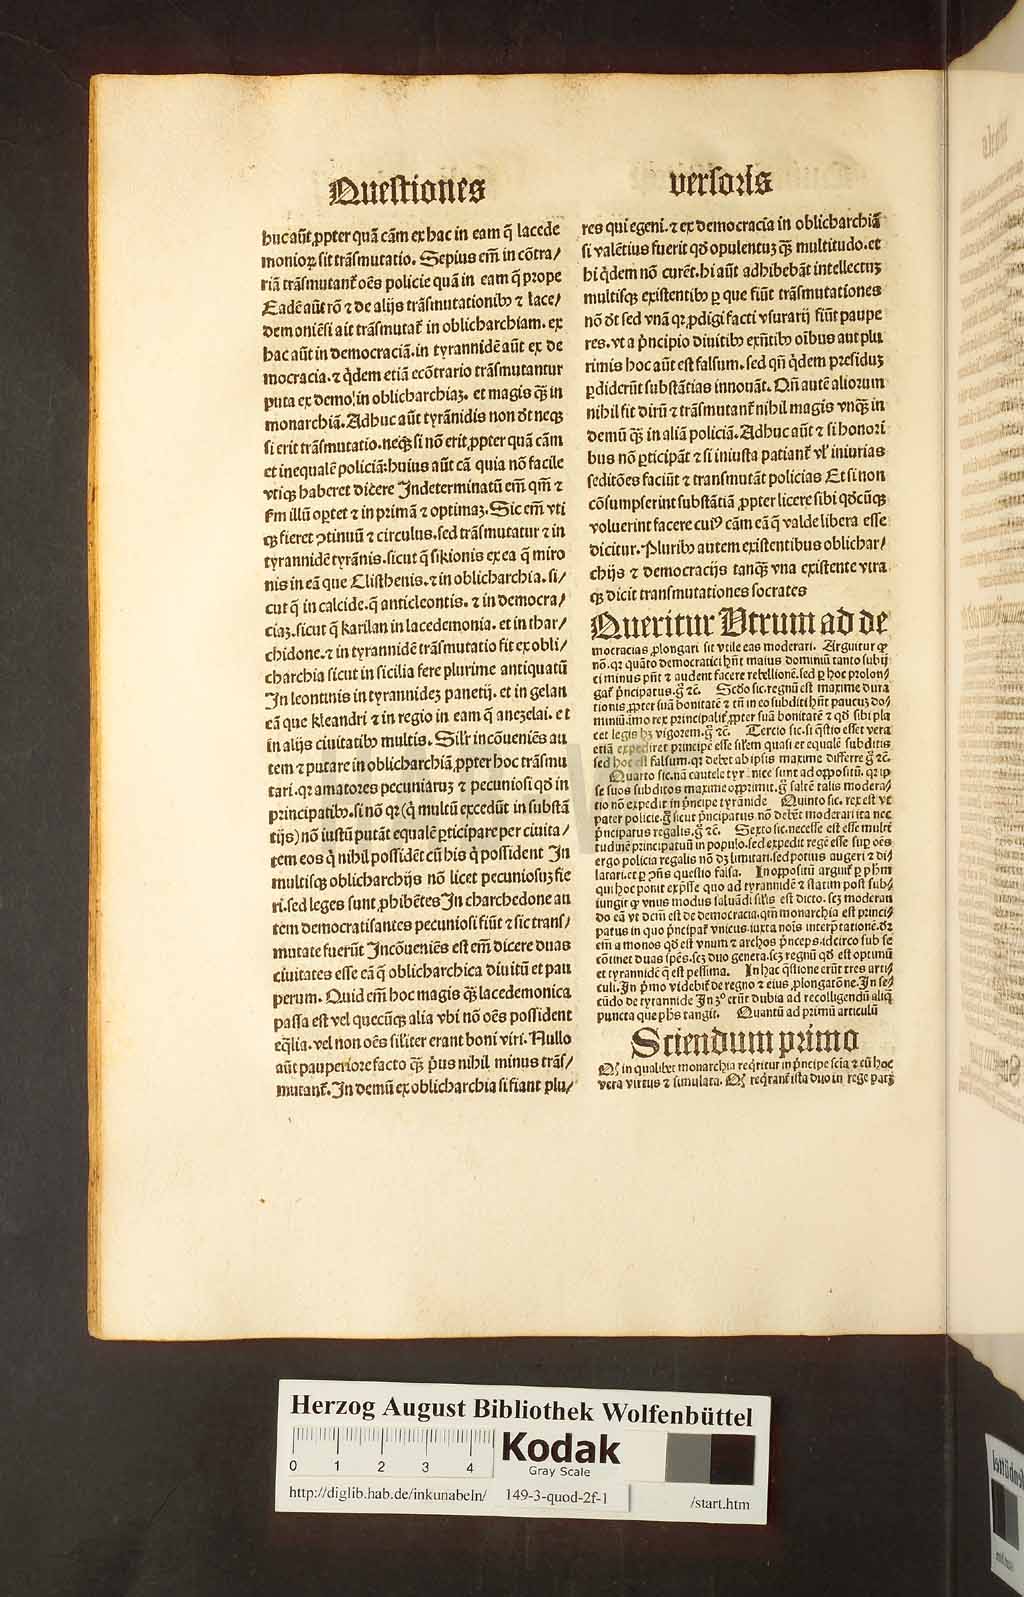 Questiones
versoris
huc aūt ꝓpter quā cām ex hac in eam q̄ lacede
monioꝝ sit trāsmutatio. Sepius em̄ in cōtra/
riā trāsmutant᷑ oēs policie quā in eam q̄ prope
Eadē aūt rō ⁊ de alijs trāsmutationibꝫ ⁊ lace/
demoniēsi ait trāsmutar̄ in oblicharchiam. ex
hac aūt in democraciā. in tyrannidē aūt ex de
mocracia. ⁊ q̇dem etiā ecōtrario trāsmutantur
puta ex demo! in oblicharchiaꝫ. et magis qꝫ̄ in
monarchiā. Adhuc aūt tyrānidis non dt̄ neqꝫ
si erit trāsmutatio. neqꝫ si nō erit ꝓpter quā cām
et inequalē policiā: huius aūt cā quia nō facile
vtiqꝫ haberet dicere Indeterminatū em̄ qm̄ ⁊
ẜm illū oꝑtet ⁊ in primā ⁊ optimaꝫ. Sic em̄ vti
qꝫ fieret ꝯtinuū ⁊ circulus. sed trāsmutatur ⁊ in
tyrannidē tyrānis. sicut q̄ sikionis ex ea q̄ miro
nis in eā que Clisthenis. ⁊ in oblicharchia. si/
cut q̄ in calcide. q̄ anticleontis. ⁊ in democra/
ciaꝫ. sicut q̄ karilan in lacedemonia. et in thar/
chidone. ⁊ in tyrannidē trāsmutatio fit ex obli/
charchia sicut in sicilia fere plurime antiquatū
In leontinis in tyrannideꝫ panetij. et in gelan
eā que kleandri ⁊ in regio in eam q̄ anexelai. et
in alijs ciuitatibꝫ multis. Silr̄ incōueniēs au
tem ⁊ putare in oblicharchiā ꝓpter hoc trāsmu
tari. qꝛ amatores pecuniaruꝫ ⁊ pecuniosi qd̄ in
principatibꝫ. si nō qꝛ (q̇ multū excedūt in substā
tijs) nō iustū putāt equalē ꝑticipare per ciuita/
tem eos q̇ nihil possidēt cū his q̇ possident In
multisqꝫ oblicharchijs nō licet pecuniosuꝫ fie
ri. sed leges sunt ꝓhibētes In charchedone au
tem democratisantes pecuniosi fiūt ⁊ sic trans/
mutate fuerūt Incōueniēs est em̄ dicere duas
ciuitates esse eā q̄ oblicharchica diuitū et pau
perum. Quid em̄ hoc magis qꝫ̄ lacedemonica
passa est vel quecūqꝫ alia vbi nō oēs possident
eq̄lia. vel non oēs silīter erant boni viri. Nullo
aūt pauperiore facto qꝫ̄ pͥus nihil minus trās/
mutant᷑. In demū ex oblicharchia si fiant plu/
res qui egeni. ⁊ ex democracia in oblicharchiā
si valētius fuerit qd̄ opulentuꝫ qꝫ̄ multitudo. et
hi q̇dem nō curēt. hi aūt adhibebāt intellectuꝫ
multisqꝫ existentibꝫ ꝑ que fiūt trāsmutationes
nō dt̄ sed vnā qꝛ ꝓdigi facti vsurarij fiūt paupe
res. vt a pͥncipio diuitibꝫ exn̄tibꝫ oībus aut plu
rimis hoc aūt est falsum. sed qn̄ q̇dem presiduꝫ
ꝑdiderūt substātias innouāt. Qn̄ autē aliorum
nihil fit dirū ⁊ trāsmutant᷑ nihil magis vnqꝫ̄ in
demū qꝫ̄ in aliā policiā. Adhuc aūt ⁊ si honori
bus nō ꝑticipāt ⁊ si iniusta patiant᷑ vl̓ iniurias
seditōes faciūt ⁊ transmutāt policias Et si non
cōsumpserint substātiā ꝓpter licere sibi qd̄cūqꝫ
voluerint facere cuiꝰ cām eā q̄ valde libera esse
dicitur. Pluribꝫ autem existentibus oblichar/
chijs ⁊ democracijs tanqꝫ̄ vna existente vtra
qꝫ dicit transmutationes socrates
Queritur Utrum ad de
mocracias ꝓlongari sit vtile eas moderari. Arguitur ꝙ
nō. qꝛ quāto democratici hn̄t maius dominiū tanto subij
ci minus pn̄t ⁊ audent facere rebellionē. sed ꝑ hoc prolon/
gat᷑ pͥncipatus. g̊ ⁊c̄. Scd̄o sic. regnū est maxime dura
tionis ꝓpter suā bonitatē ⁊ tn̄ in eo subditi hn̄t paucuꝫ do/
miniū. imo rex principalit᷑ ꝓpter suā bonitatē ⁊ qd̄ sibi pla
cet legis hꝫ vigorem. g̊ ⁊c̄. Tercio sic. si q̄stio esset vera
etiā expediret principē esse sil̓em quasi et equalē subditis
sed hoc est falsum. qꝛ debet ab ipsis maxime differre g̊ ⁊c̄.
Quarto sic. nā cautele tyrānice sunt ad oppositū. qꝛ ip
se suos subditos maxime opprimit. g̊ saltē talis modera/
tio nō expedit in pͥncipe tyrānide Quinto sic. rex est vt
pater policie. g̊ sicut pͥncipatus nō debēt moderari ita nec
pͥncipatus regalis. g̊ ⁊c̄. Sexto sic. necesse est esse multi
tudinē principatuū in populo. sed expedit regē esse suꝑ oēs
ergo policia regalis nō dꝫ limitari. sed potius augeri ⁊ di/
latari. et ꝑ ꝯn̄s questio falsa. In oppositū arguit᷑ ꝑ phm̄
qui hoc ponit exp̄sse quo ad tyrannidē ⁊ statim post sub/
iungit ꝙ vnus modus saluādi sil̓is est dicto. scꝫ moderan
do eā vt dcm̄ est de democracia. qm̄ monarchia est princi/
patus in quo pͥncipat᷑ vnicus. iuxta nois interp̄tationē. dꝛ
em̄ a monos qd̄ est vnum ⁊ archos pͥnceps. idcirco sub se
cōtinet duas spēs. scꝫ duo genera. scꝫ regnū qd̄ est optimū
et tyrannidē q̄ est pessima. In hac q̄stione erūt tres arti/
culi. In pͥmo videbit᷑ de regno ⁊ eius ꝓlongatōne. In se/
cūdo de tyrannide In 3º erūt dubia ad recolligendū aliq̄
puncta que phs̄ tangit. Quantū ad primū articulū
Sciendum primo
Qꝫ in qualibet monarchia reqͥritur in pͥncipe scīa ⁊ cū hoc
vera virtus ⁊ simulata. Qꝫ reqͥrant᷑ ista duo in rege patꝫ
Herzog August Bibliothek Wolfenbüttel
0 1 2 3 4
Kodak
Gray Scale
http://diglib.hab.de/inkunabeln/ 149-3-quod-2f-1 /start.htm